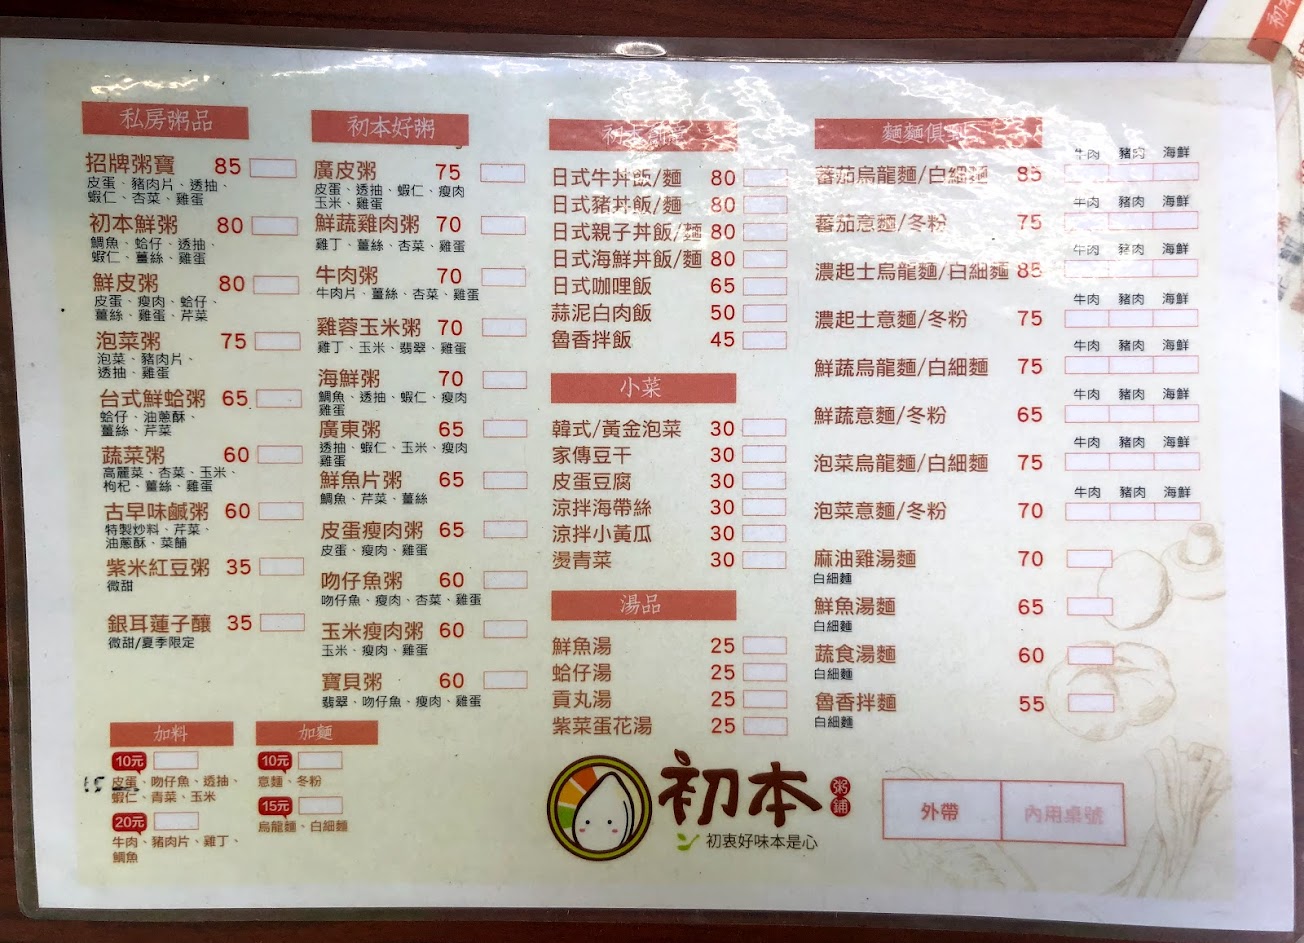 私房粥品
招牌粥寶 85
皮蛋、豬肉片、透抽、
蝦仁、杏菜、雞蛋
初本鮮粥 80
鯛魚、蛤仔、透抽、
蝦仁、薑絲、雞蛋
鮮皮粥 80
皮蛋、瘦肉、蛤仔、
薑絲、雞蛋、芹菜
泡菜粥 75
泡菜、豬肉片、
透抽、雞蛋
台式鮮蛤粥 65
蛤仔、油蔥酥、
薑絲、芹菜
蔬菜粥 60
高麗菜、杏菜、玉米、
枸杞、薑絲、雞蛋
古早味鹹粥 60
特製炒料、芹菜、
油蔥酥、菜脯
紫米紅豆粥 35
微甜
銀耳蓮子釀 35
微甜/夏季限定
初本好粥
廣皮粥 75
皮蛋、透抽、蝦仁、瘦肉
玉米、雞蛋
鮮蔬雞肉粥 70
雞丁、薑絲、杏菜、雞蛋
牛肉粥 70
牛肉片、薑絲、杏菜、雞蛋
雞蓉玉米粥 70
雞丁、玉米、翡翠、雞蛋
海鮮粥 70
鯛魚、透抽、蝦仁、瘦肉
雞蛋
廣東粥 65
透抽、蝦仁、玉米、瘦肉
雞蛋
鮮魚片粥 65
鯛魚、芹菜、薑絲
皮蛋瘦肉粥 65
皮蛋、瘦肉、雞蛋
吻仔魚粥 60
吻仔魚、瘦肉、杏菜、雞蛋
玉米瘦肉粥 60
玉米、瘦肉、雞蛋
寶貝粥 60
翡翠、吻仔魚、瘦肉、雞蛋
加料
10元
15
皮蛋、吻仔魚、透抽、
蝦仁、青菜、玉米
20元
牛肉、豬肉片、雞丁、
鯛魚
加麵
10元
意麵、冬粉
15元
烏龍麵、白細麵
初本
日式牛丼飯/麵 80
日式豬丼飯/麵 80
日式親子丼飯/麵 80
日式海鮮丼飯/麵 80
日式咖哩飯 65
蒜泥白肉飯 50
魯香拌飯 45
小菜
韓式/黃金泡菜 30
家傳豆干 30
皮蛋豆腐 30
涼拌海帶絲 30
涼拌小黃瓜 30
燙青菜 30
湯品
鮮魚湯 25
蛤仔湯 25
貢丸湯 25
紫菜蛋花湯 25
麵麵俱到
牛肉 豬肉 海鮮
蕃茄烏龍麵/白細麵 85
牛肉 豬肉 海鮮
蕃茄意麵/冬粉 75
牛肉 豬肉 海鮮
濃起士烏龍麵/白細麵 85
牛肉 豬肉 海鮮
濃起士意麵/冬粉 75
牛肉 豬肉 海鮮
鮮蔬烏龍麵/白細麵 75
牛肉 豬肉 海鮮
鮮蔬意麵/冬粉 65
牛肉 豬肉 海鮮
泡菜烏龍麵/白細麵 75
牛肉 豬肉 海鮮
泡菜意麵/冬粉 70
麻油雞湯麵 70
白細麵
鮮魚湯麵 65
白細麵
蔬食湯麵 60
白細麵
魯香拌麵 55
白細麵
初本
粥鋪
初衷好味本是心
外帶 內用桌號
初本